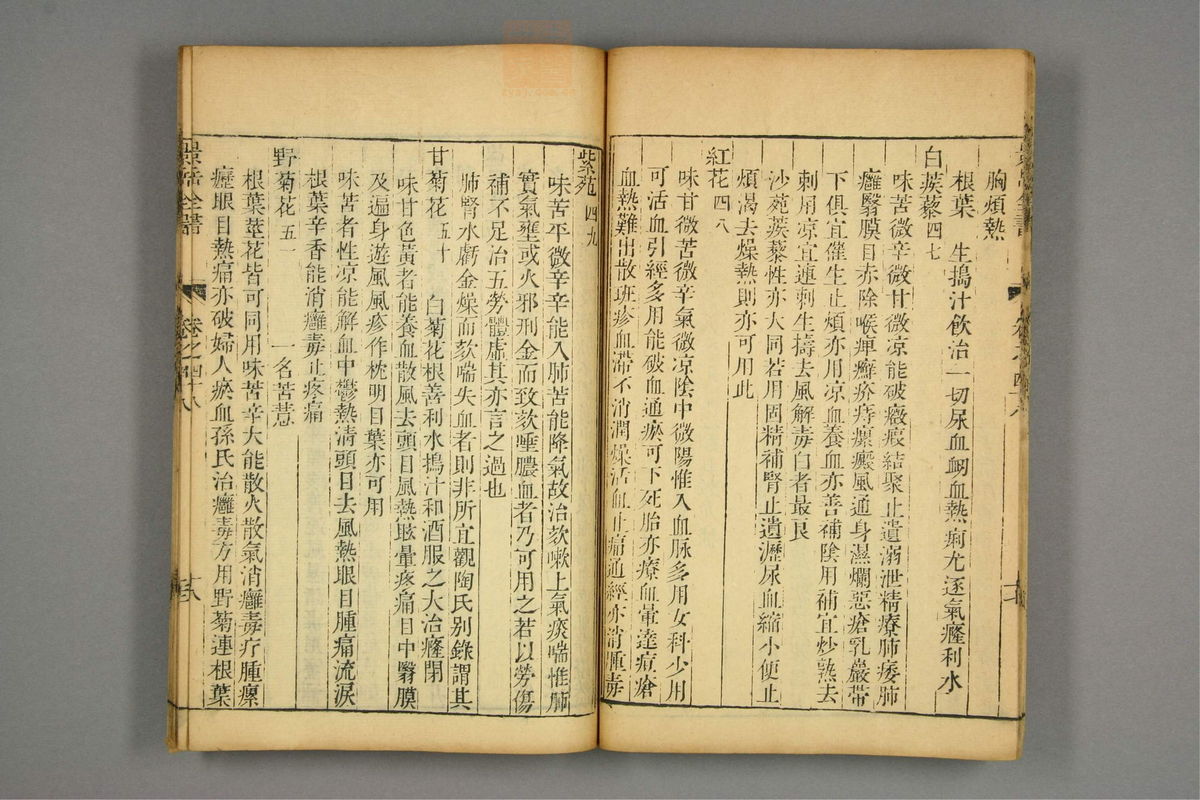 胸煩熱
根葉 生搗汁飲治一切尿血衂血熱痢尤逐氣癃利水
白蒺藜四七
味苦微辛微甘微凉能破癥瘕結聚止遺溺泄精療肺痿肺
癰翳膜目赤除喉痺癬疥痔癝癜風通身濕爛惡瘡乳巖帶
下俱宜催生止煩亦用凉血養血亦善補陰用補宜炒熟去
刺用凉宜連刺生擣去風解毒白者最良
沙苑蒺藜性亦大同若用固精補腎止遺瀝尿血縮小便止
煩渴去燥熱則亦可用此
紅花四八
味甘微苦微辛氣微凉陰中微陽惟入血脉多用女科少用
可活血引經多用能破血通瘀可下死胎亦療血暈達痘瘡
血熱難出散班疹血滯不消潤燥活血止痛通經亦消腫毒
紫菀四九
味苦平微辛辛能入肺苦能降氣故治欬嗽上氣痰喘惟肺
實氣壅或火邪刑金而致欬唾膿血者乃可用之若以勞傷
肺腎水虧金燥而欬喘失血者則非所宜觀陶氏别錄謂其
補不足治五勞體虛其亦言之過也
甘菊花五十 白菊花根善利水搗汁和酒服之大治癃閉
味甘色黃者能養血散風去頭目風熱眩暈疼痛目中翳膜
及遍身遊風風疹作枕明目葉亦可用
味苦者性凉能解血中鬱熱清頭目去風熱眼目腫痛流淚
根葉辛香能消癰毒止疼痛
野菊花五一 一名苦薏
根葉莖花皆可同用味苦辛大能散火散氣消癰毒疔腫瘰
癧眼目熱痛亦破婦人瘀血孫氏治癰毒方用野菊連根葉
景岳全書
卷之四十八